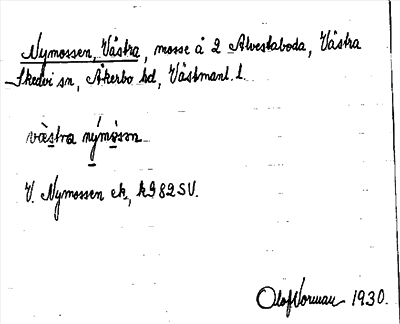 Nymossen, Västra, mosse å 2 Alvestaboda, Västra
Skedvi sn, Åkerbo hd, Västmanl. l.
västra nýmòsən
V. Nymossen ek, k982SV.
Olof Norman 1930.